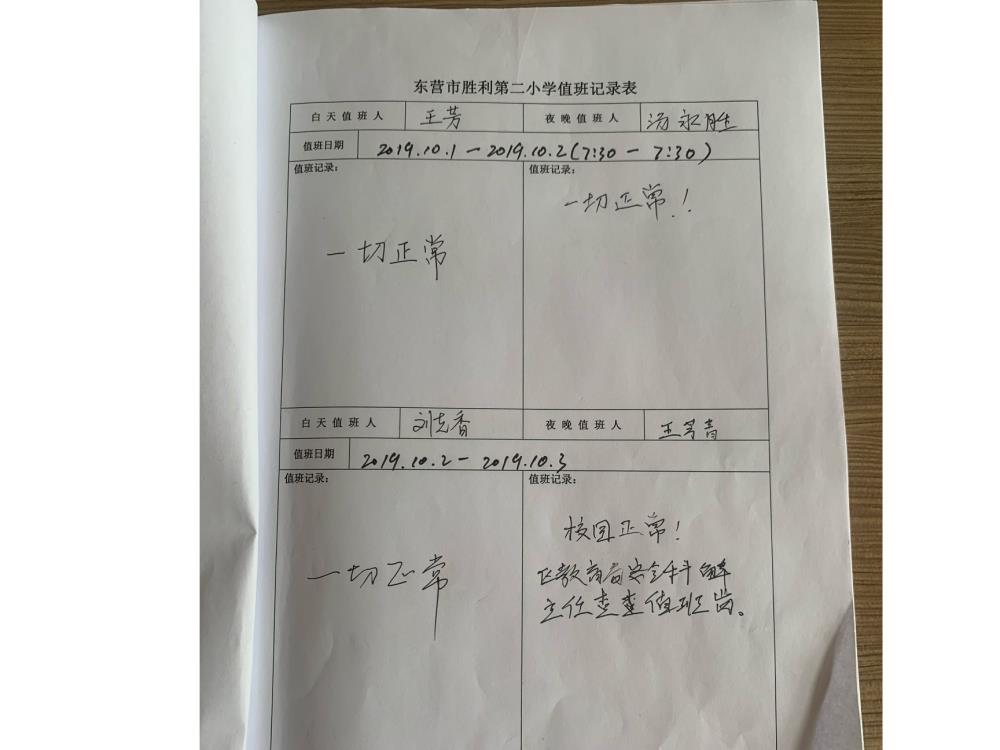 东营市胜利第二小学值班记录表
白天值班人 王芳 夜晚值班人 汤永胜
值班日期 2019.10.1 — 2019.10.2(7:30 — 7:30)
值班记录: 值班记录:
一切正常!
一切正常
白天值班人 刘志香 夜晚值班人 王 青
值班日期 2019.10.2 — 2019.10.3
值班记录: 值班记录:
校园正常!
一切正常
区教育局安全科解
主任查查值班岗。